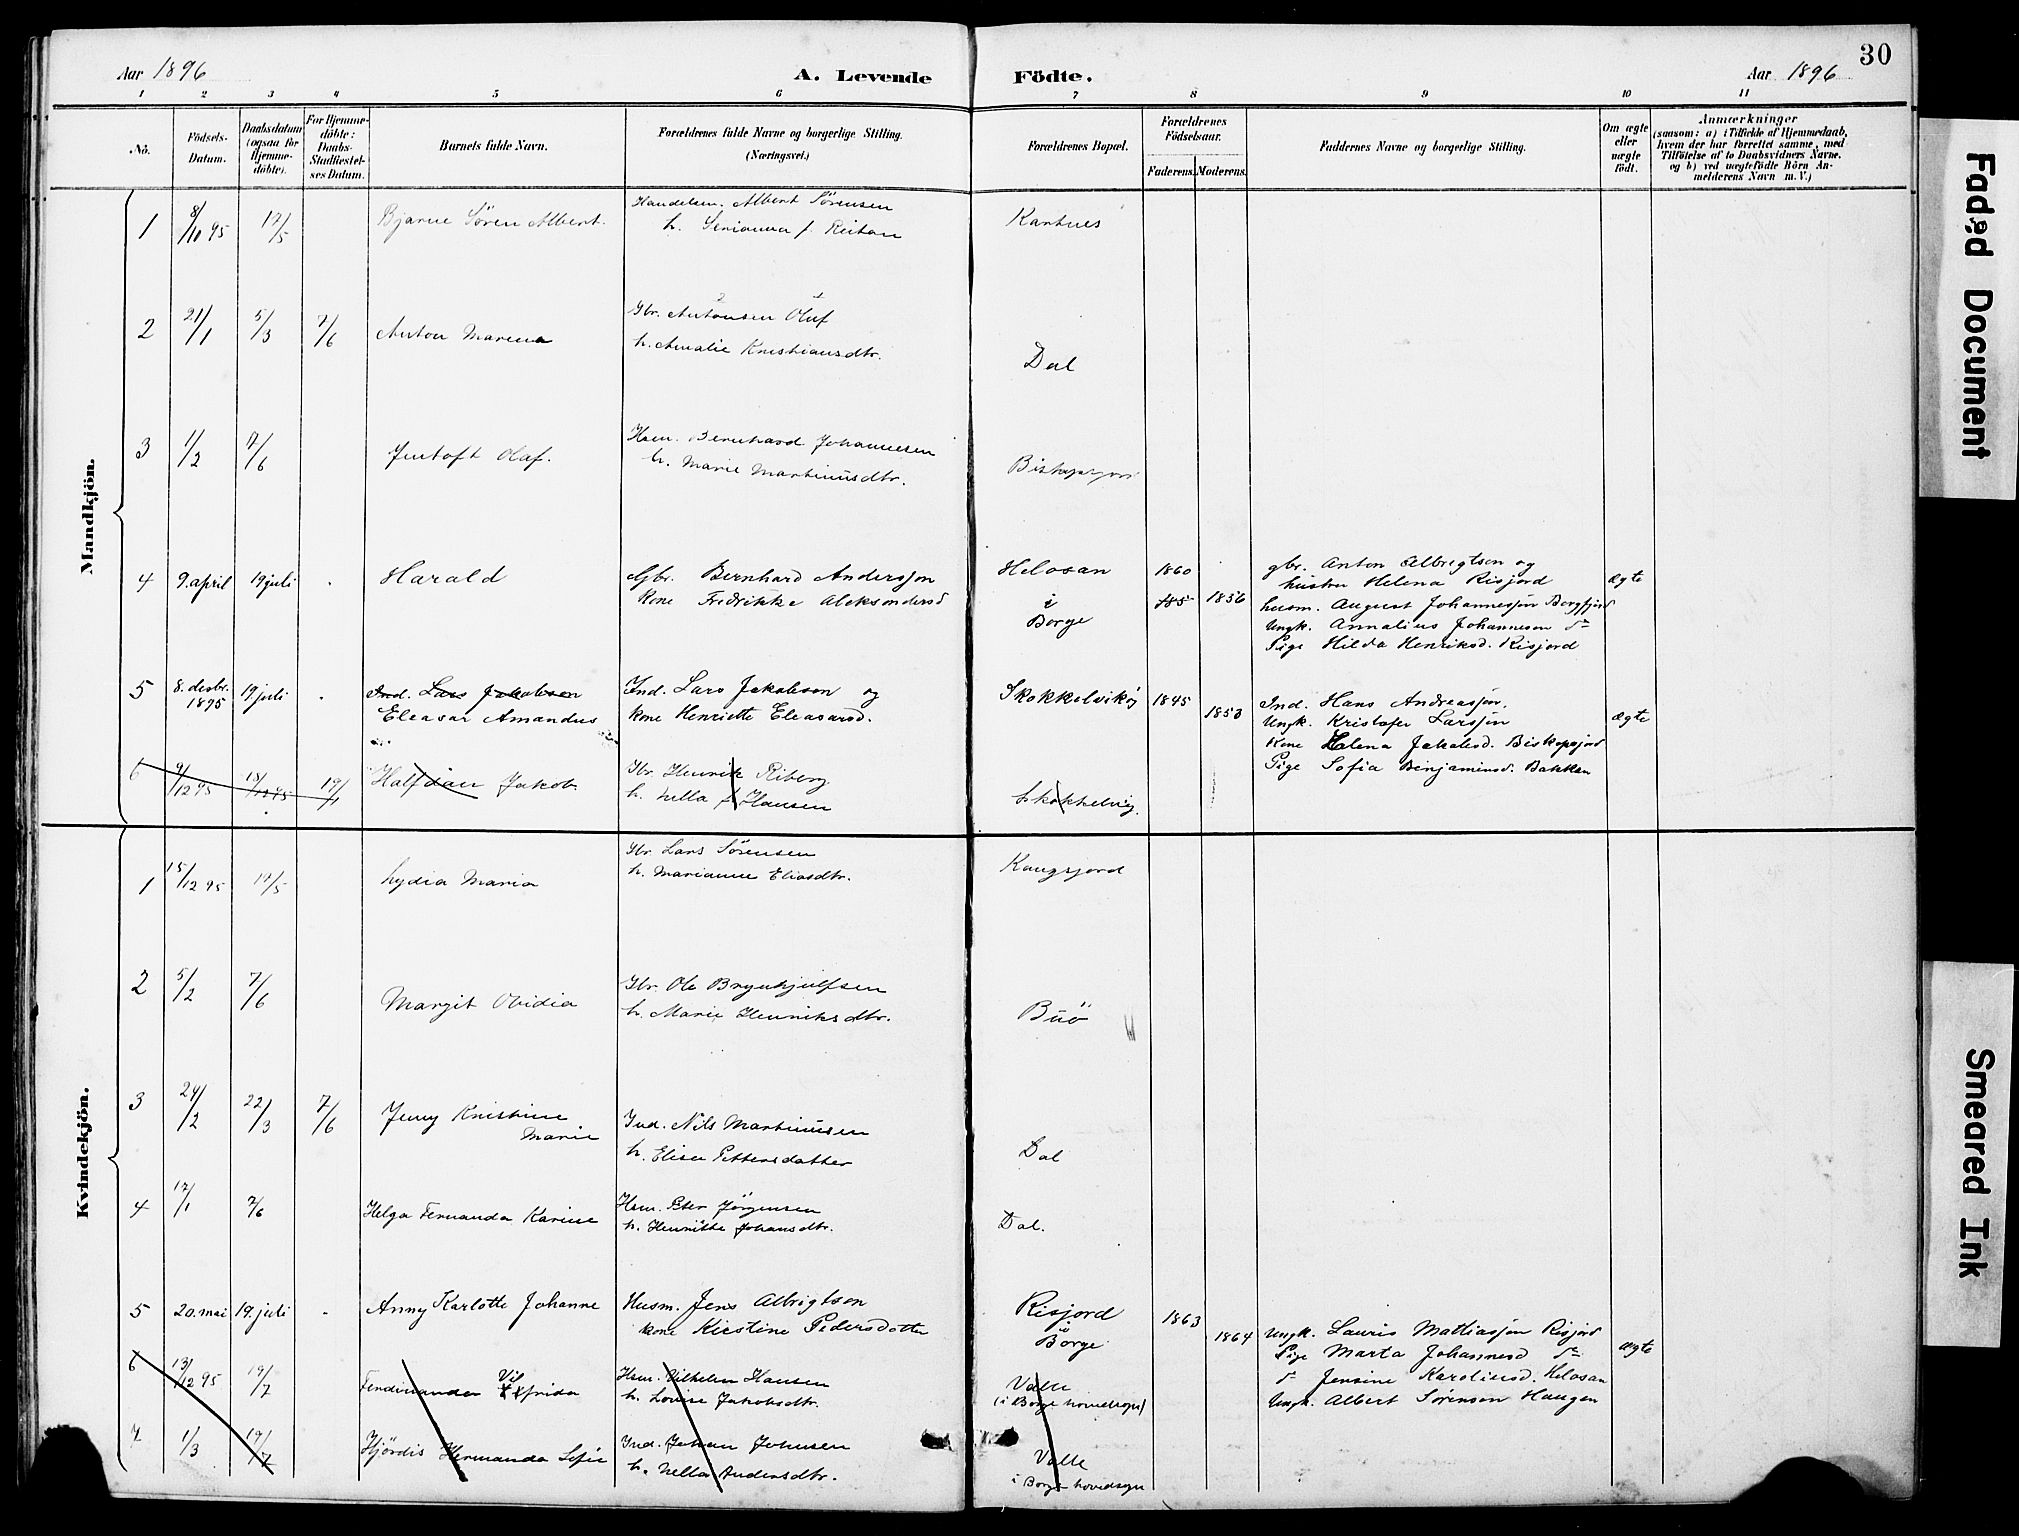 Aar 1896
A. Levende Födte.
Aar 1896
30
1 2 3 4 5 6 7 8 9 10 11
No.
Födsels-Datum.
Daabsdatum (ogsaa for Hjemme-döbte).
For Hjemme-döbte: Daabs-Stadfæstel-ses Datum.
Barnets fulde Navn.
Forældrenes fulde Navne og borgerlige Stilling. (Næringsvei.)
Forældrenes Bopæl.
Forældrenes Födselsaar.
Faderens. Moderens.
Faddernes Navne og borgerlige Stilling.
Om ægte eller uægte födt.
Anmærkninger
(saasom: a) i Tilfælde af Hjemmedaab,
hvem der har forrettet samme, med
Tilföielse af to Daabsvidners Navne.
og b) ved uægtefödte Börn An-
melderens Navn m. V.)
Mandkjön.
1 8/10 95 17/5 Bjarne Sören Albert. Handelsm. Albert Sörensen
h. Serianna f. Reitan
2 21/1 5/3 7/6 Anton Marenu Gbr. Antonsen Oluf
h. Amalie Kristiansdtr. Dal
3 1/2 7/6 Jentoft Olaf. Hsm. Bernhard Johannesen
h. Marie Martinusdtr.
4 9. april 19 juli - Harald Gbr. Bernhard Andersjon
kone Fredrikke Aleksandersd
Helosan i Borge 1860 185 1856
gbr. Anton Albregtson og
hustru Helena Risjord
husm. August Johannesjon Borgfjord
Ungk. Annalius Johanneson do
Pige Hilda Henriksd. Risjord
ægte
5 8. desbr. 1895 19 juli - Ind. Lars Jakobson
Eleasar Amandus
Ind. Lars Jakobson og
kone Henriette Eleasarsd.
1845 1853
Ind. Hans Andreasjon.
Ungk. Kristofer Larsjon
Kone Helena Jakobsd. Biskopsjord
Pige Sofia Benjaminsd. Bakken
ægte
6 9/12 95 19/1 Halfdan Jakob Gbr. Henrik Riberg
h. Nella f. Hansen Skokkelvig.
Kvindekjön.
1 15/12 95 17/5 Lydia Maria Gbr. Lars Sörensen
h. Marianne Eliasdtr. Kangsjord
2 5/2 7/6 Margit Ovidia Gbr. Ole Brynhjulfsen
h. Marie Henriksdtr. Buö
3 24/2 22/3 7/6 Jenny Kristine Marie
Ind. Nils Martinusen
h. Elisa Pettersdatter Dal
4 17/1 7/6 Helga Fernanda Karine Hsm. Peter Jörgensen
h. Henritte Johansdtr. Dal.
5 20. mai 19. juli - Anny Karlotte Johanne Husm. Jens Albrigtson
kone Kirstine Pedersdotter
Risjord i Borge 1863 1864
Ungk. Lauris Mathiasjon Risjord
Pige Marta Johannesd do
do Jensine Karolinsd. Helosan
Ungk. Albert Sörenson Haugen
ægte
6 13/12 95 19/7 Ferdinanda Vilfrida Hsm. Vilhelm Hansen
h. Lovise Jakobsdtr. Valle
(i Borge hovedsogn)
7 1/3 19/7 Hjördis Hermanda Sofie Ind. Johan Johnsen
h. Nella Andersdtr. Valle
i Borge hovedsogn
Faded Document
Smeared Ink